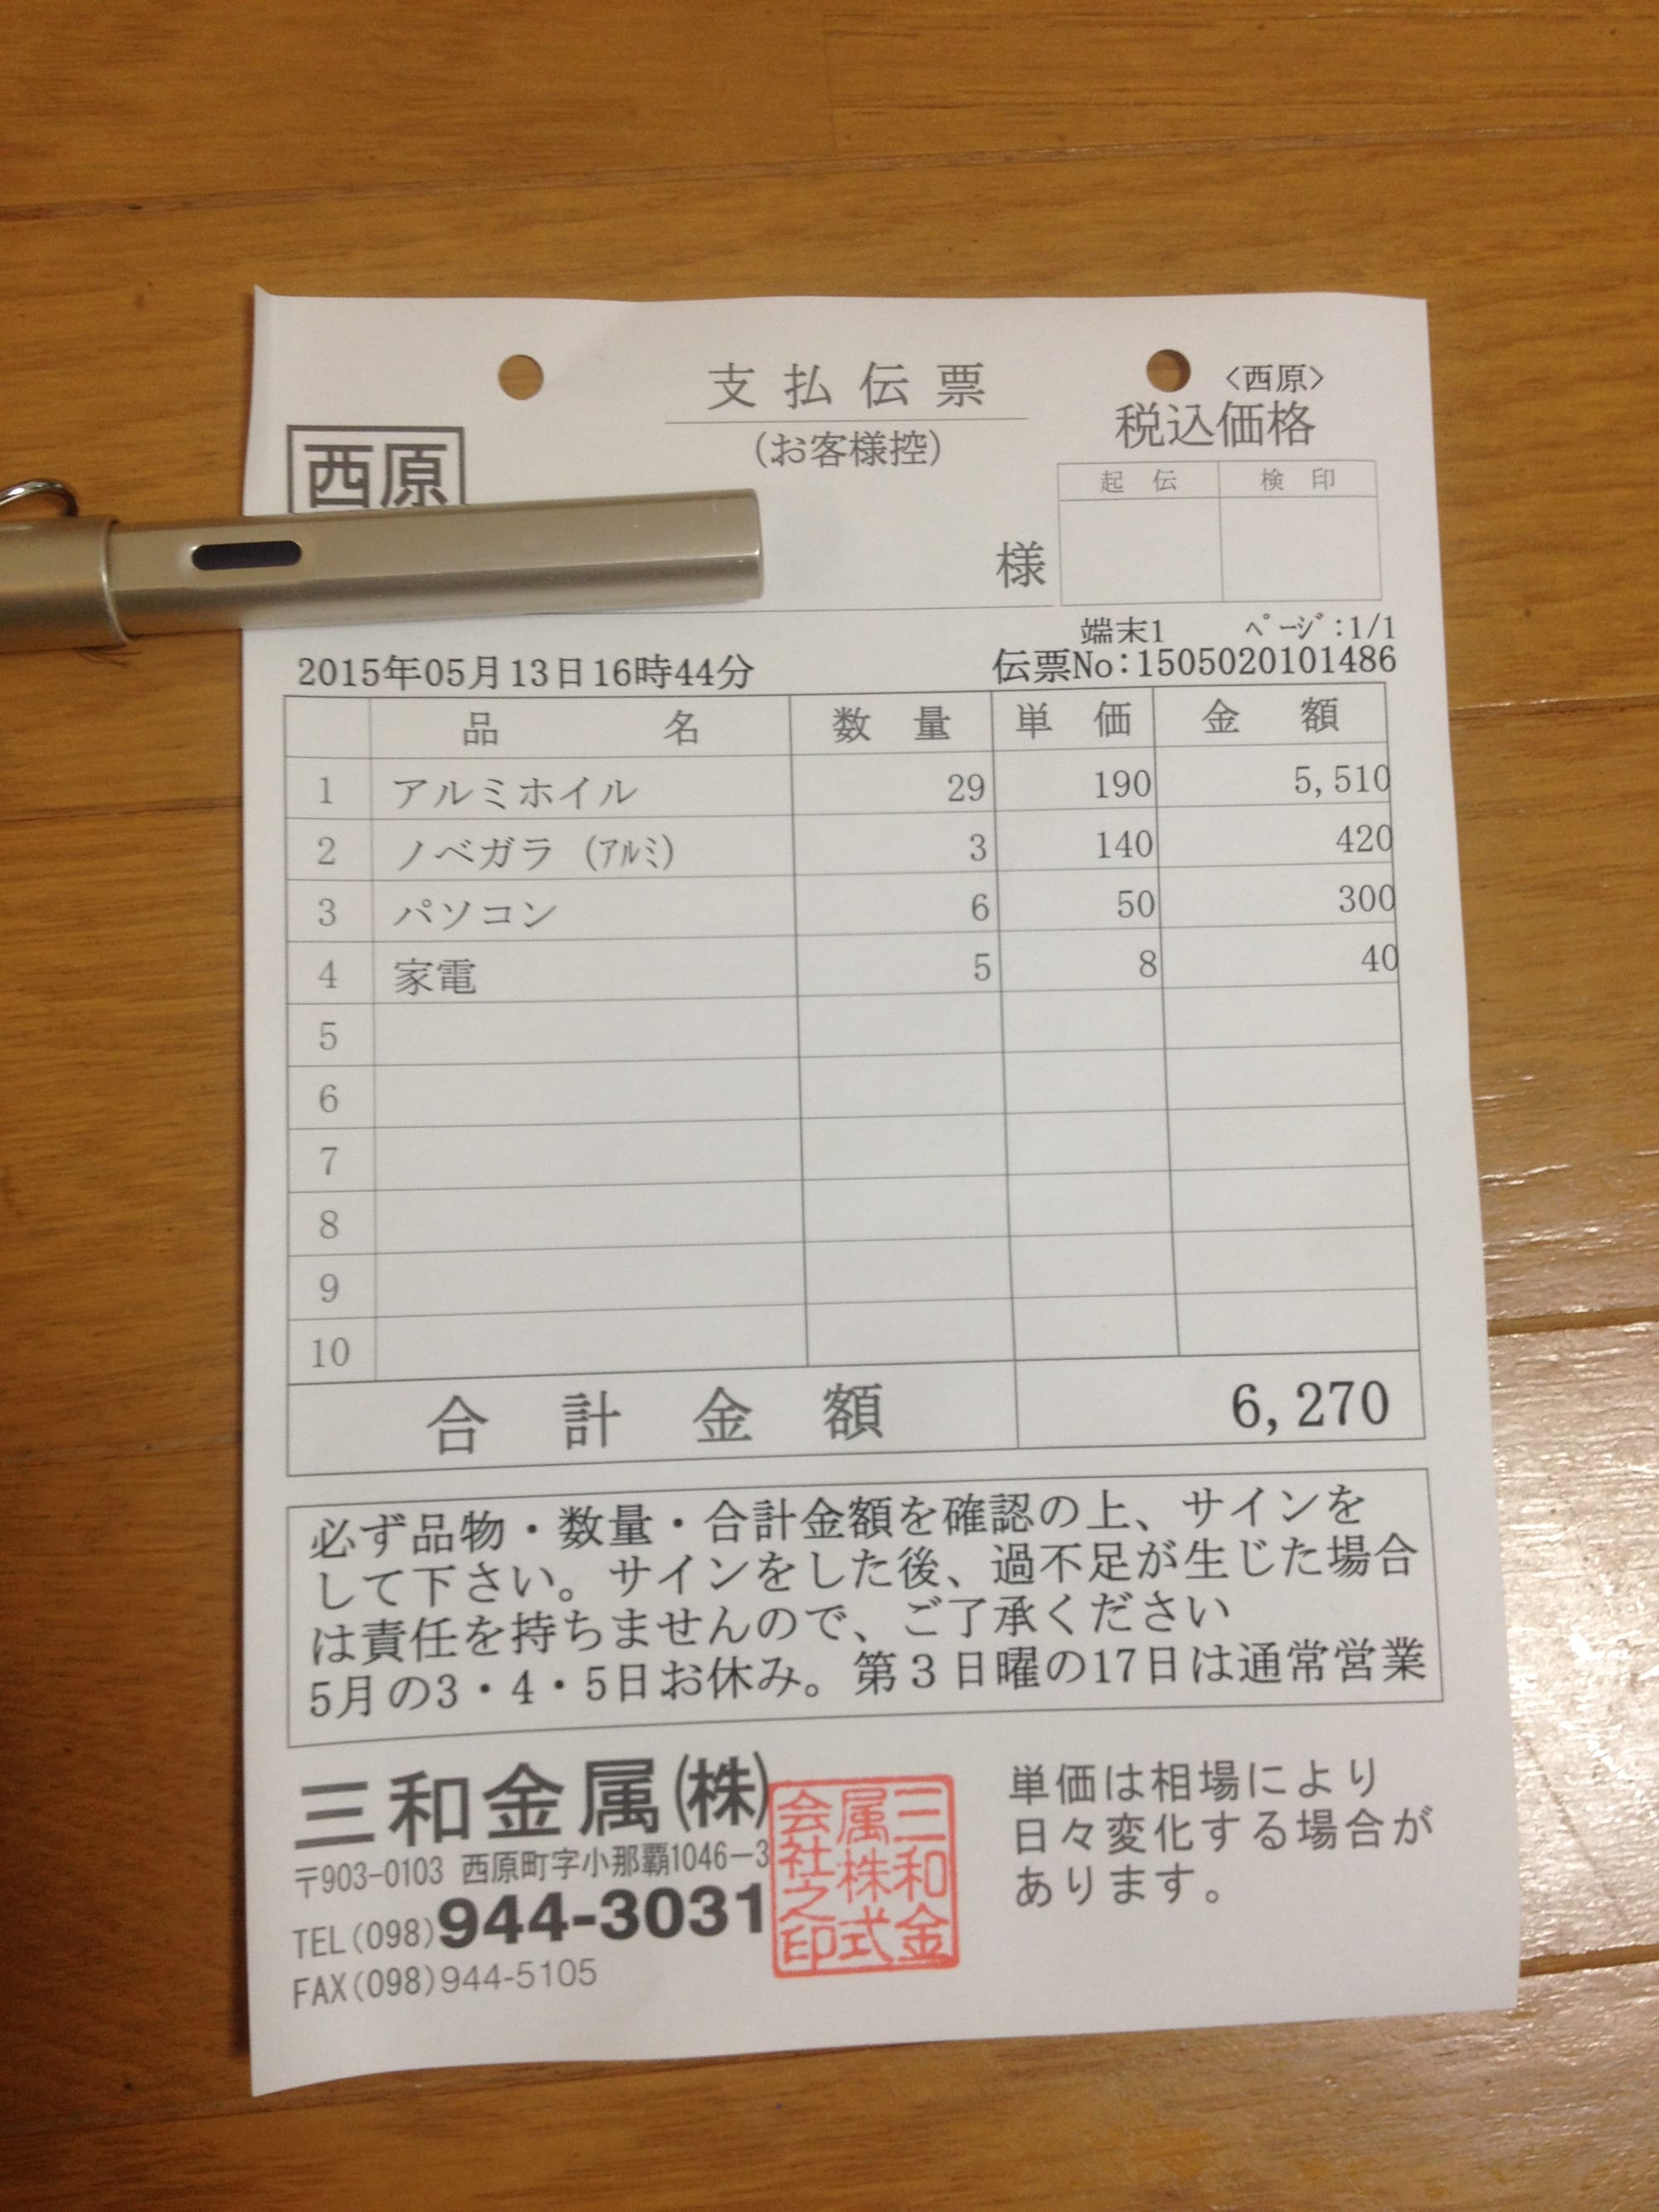 支払伝票
(お客様控)
<西原>
税込価格
西原
起伝 検印
様
端末1 ページ:1/1
2015年05月13日16時44分 伝票No:1505020101486
品名 数量 単価 金額
1 アルミホイル 29 190 5,510
2 ノベガラ (アルミ) 3 140 420
3 パソコン 6 50 300
4 家電 5 8 40
5
6
7
8
9
10
合計金額 6,270
必ず品物・数量・合計金額を確認の上、サインを
して下さい。サインをした後、過不足が生じた場合
は責任を持ちませんので、ご了承ください
5月の3・4・5日お休み。第3日曜の17日は通常営業
三和金属(株)
〒903-0103 西原町字小那覇1046-3
TEL(098)944-3031
FAX(098)944-5105
三和金
属株式
会社之印
単価は相場により
日々変化する場合が
あります。